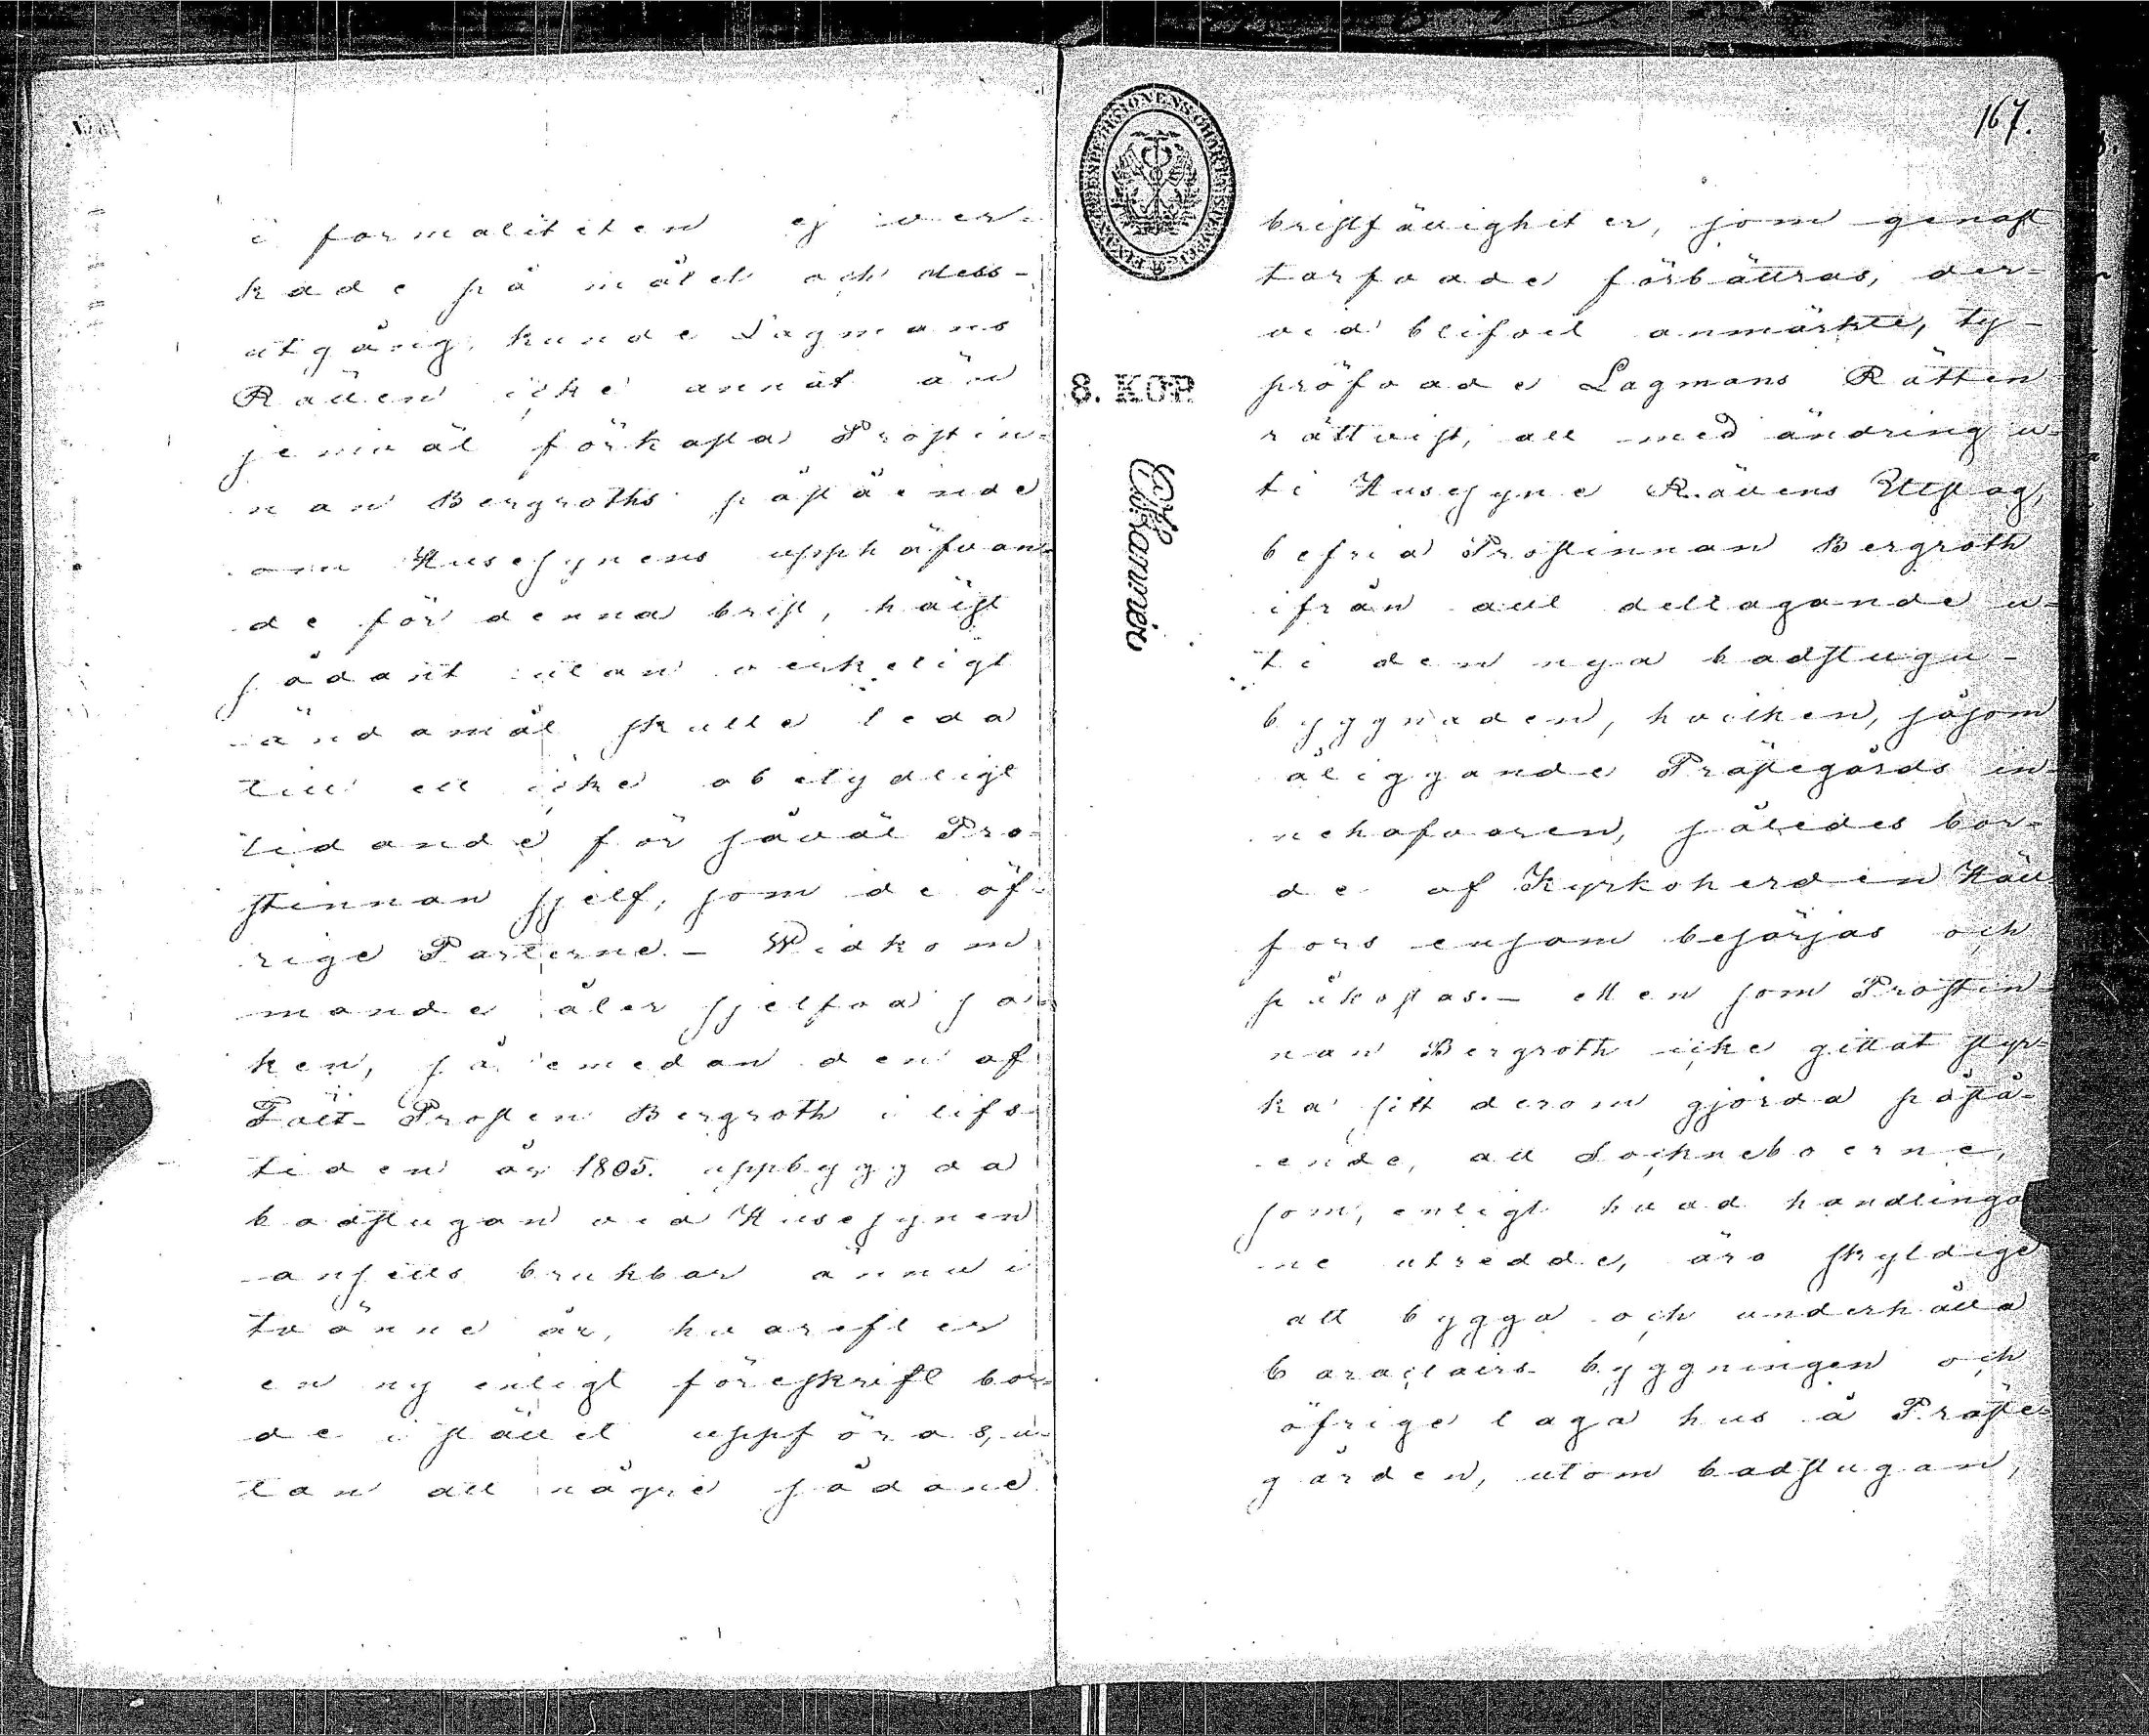 i formaliteten ej wer-
kade på målet och dess
utgång, kunde Lagmans
Rätten icke annat än
jemväl förkasta Prostin-
nan Bergroths påstående
om Husesynens upphäfwan-
de för denna brist, hälst
sådant utan verkeligt
ändamål skulle leda
till ett icke obetydligt
lidande för såväl Pro-
stinnan sjelf, som de öf-
rige Parterne. – Widkom
mande åter sjelfva sa-
ken, så emedan den af
Fält-Prosten Bergroth i lifs-
tiden år 1805. uppbyggda
badstugan vid Husesynen
ansetts brukbar ännu i
tvänne år, hvarefter
en ny enligt föreskrift bor-
de i stället uppföras, u-
tan att någre sådane
167.
8. KOP.
bristfälligheter, som genast
tarfvade förbättras, der-
vid blifvit anmärkte, ty
pröfvade Lagmans Rätten
rättvist, att med ändring u-
ti Husesyne Rättens Utslag,
befria Prostinnan Bergroth
ifrån allt deltagande u-
ti den nya badstugu-
byggnaden, hvilken, såsom
åliggande Prästegårds in-
nehafvaren, således bor-
de af Kyrkoherden Häll
fors ensam besörjas och
påkostas. – Men som Prostin-
nan Bergroth icke gittat styr-
ka sitt derom gjorda påstå-
ende, att Sockneboerne,
som, enligt hvad handlinga
ne utredde, äro skyldige
att bygga och underhålla
Caractairs byggningen och
öfrige laga hus å Präste-
gården, utom badstugan,